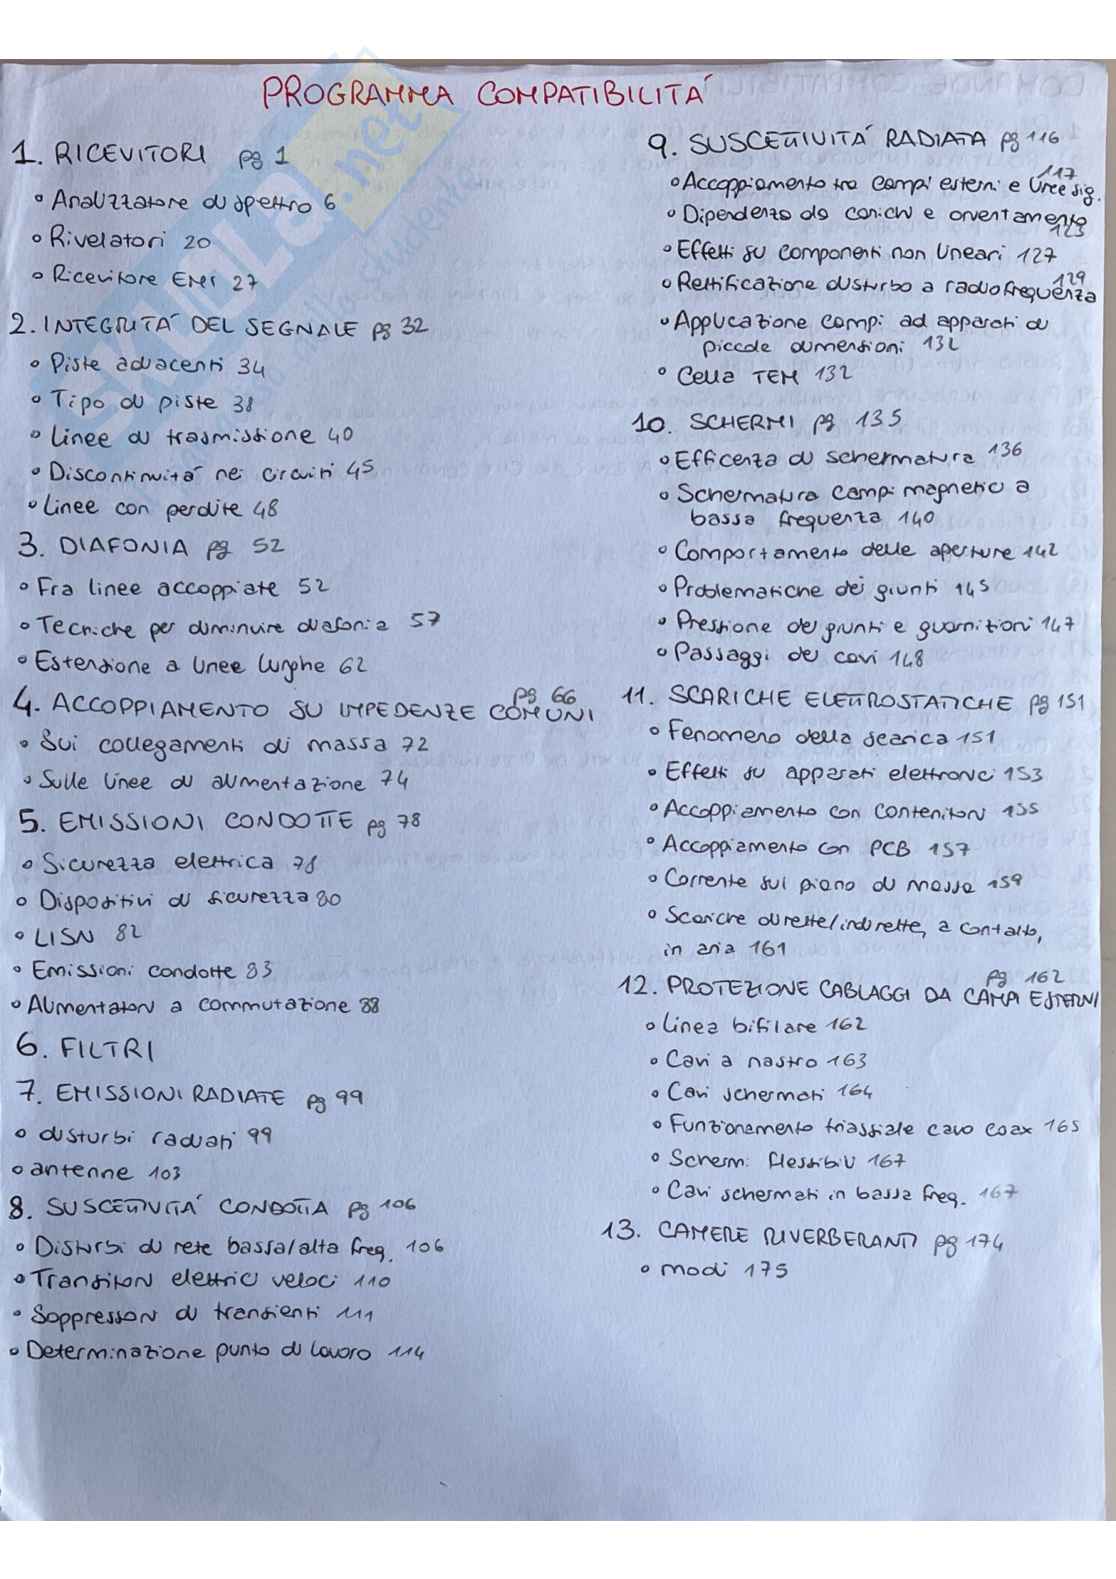 PROGRAMMA COMPATIBILITÀ
1. RICEVITORI pg 1
• Analizzatore di spettro 6
• Rivelatori 20
• Ricevitore EMI 27
2. INTEGRITÀ DEL SEGNALE pg 32
• Piste adiacenti 34
• Tipo di piste 38
• Linee di trasmissione 40
• Discontinuità nei circuiti 45
• Linee con perdite 48
3. DIAFONIA pg 52
• Fra linee accoppiate 52
• Tecniche per diminuire diafonia 57
• Estensione a linee lunghe 62
4. ACCOPPIAMENTO SU IMPEDENZE COMUNI pg 66
• Sui collegamenti di massa 72
• Sulle linee di alimentazione 74
5. EMISSIONI CONDOTTE pg 78
• Sicurezza elettrica 78
• Dispositivi di sicurezza 80
• LISN 82
• Emissioni condotte 83
• Alimentatori a commutazione 88
6. FILTRI
7. EMISSIONI RADIATE pg 99
• disturbi radiati 99
• antenne 103
8. SUSCETTIVITÀ CONDOTTA pg 106
• Disturbi di rete bassa/alta freq. 106
• Transitori elettrici veloci 110
• Soppressori di transienti 111
• Determinazione punto di lavoro 114
9. SUSCETTIVITÀ RADIATA pg 116
• Accoppiamento tra campi esterni e linee sig. 117
• Dipendenza da carichi e orientamento 123
• Effetti su componenti non lineari 127
• Rettificazione disturbo a radiofrequenza 129
• Applicazione campi ad apparati di
piccole dimensioni 132
• Cella TEM 132
10. SCHERMI pg 135
• Efficenza di schermatura 136
• Schermatura campi magnetici a
bassa frequenza 140
• Comportamento delle aperture 142
• Problematiche dei giunti 145
• Pressione dei giunti e guarnizioni 147
• Passaggi dei cavi 148
11. SCARICHE ELETTROSTATICHE pg 151
• Fenomeno della scarica 151
• Effetti su apparati elettronici 153
• Accoppiamento con contenitori 155
• Accoppiamento con PCB 157
• Corrente sul piano di massa 159
• Scariche dirette/indirette, a contatto,
in aria 161
12. PROTEZIONE CABLAGGI DA CAMPI ESTERNI pg 162
• Linea bifilare 162
• Cavi a nastro 163
• Cavi schermati 164
• Funzionamento triassiale cavo coax 165
• Schermi flessibili 167
• Cavi schermati in bassa freq. 167
13. CAMERE RIVERBERANTI pg 174
• modi 175
SKUOLA.net